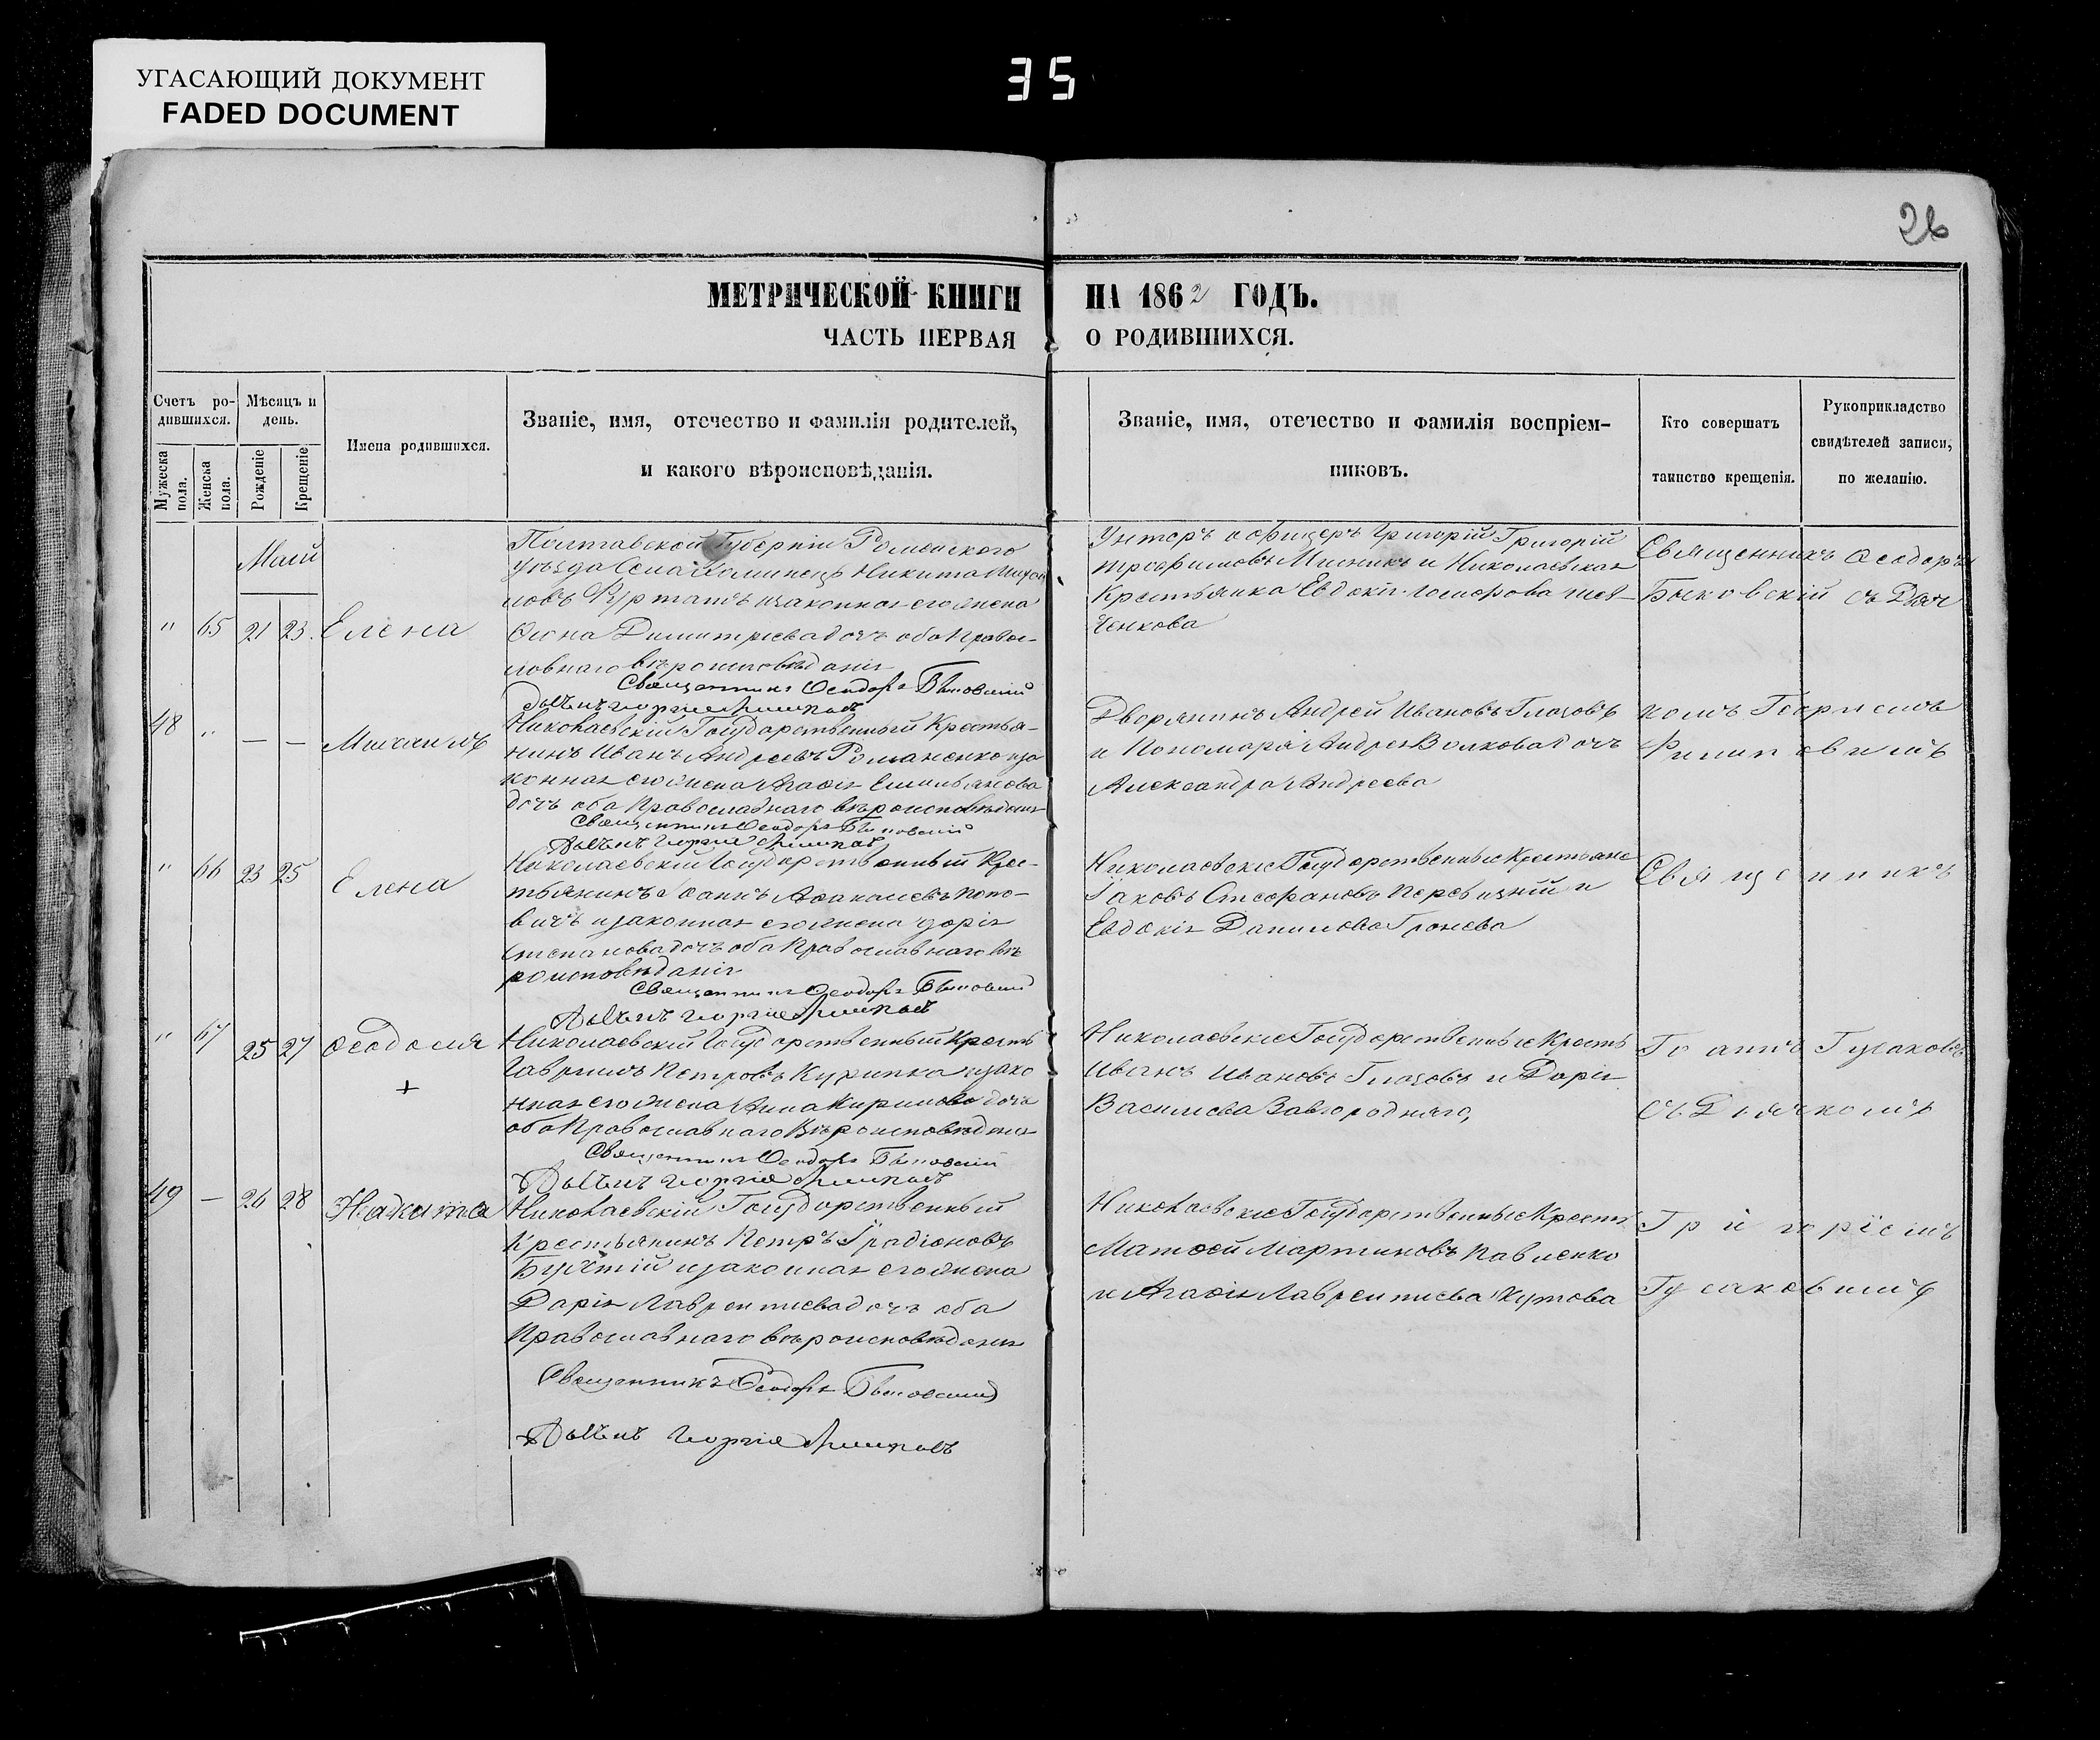 УГАСАЮЩИЙ ДОКУМЕНТ
FADED DOCUMENT
35
26
МЕТРИЧЕСКОЙ КНИГИ НА 1862 ГОДЪ.
ЧАСТЬ ПЕРВАЯ О РОДИВШИХСЯ.
Счетъ ро-
дившихся.
Мужеска пола.
Женска пола.
Мѣсяцъ и
день.
Рожденіе
Крещеніе
Имена родившихся.
Званіе, имя, отечество и фамилія родителей,
и какого вѣроисповѣданія.
Званіе, имя, отечество и фамилія воспріем-
никовъ.
Кто совершатъ
таинство крещенія.
Рукоприкладство
свидѣтелей записи,
по желанію.
Маій
" 65 21 23. Елена
Полтавской Губерніи Роменского
уѣзда Никита
законная его жена
Димитріева дочь оба Правос-
лавнаго вѣроисповѣданія
Священникъ Ѳеодоръ Быковскій
Унтеръ офицеръ Григорій Григорій
Трофимовъ и Николаевская
Крестьянка Евдокія
ченкова
Священникъ Ѳеодоръ
Быковскій съ Дьяч
48 " — — Михаилъ
Николаевскій Государственный Крестья-
нинъ Иванъ Андреевъ Романенко и за
конная его жена Агафія Емельянова
дочь оба Православнаго вѣроисповѣданія
Священникъ Ѳеодоръ Быковскій
Дворянинъ Андрей Ивановъ Глазовъ
и Пономаря Андрея Волкова дочь
Александра Андреева
комъ Георгіемъ
" 66 23 25 Елена
Николаевскій Государственный Крес-
тьянинъ Іоаннъ Попо-
вичъ и законная его жена
Степанова дочь оба Православнаго вѣ
роисповѣданія
Священникъ Ѳеодоръ Быковскій
Николаевскіе Государственные Крестьяне
Іаковъ Стефановъ и
Евдокія Данилова
Священникъ
" 67 25 27 Ѳеодосія
+
Николаевскій Государственный Кресть
Гавріилъ Петровъ Курипка и зако
нная его жена Анна Кирилова дочь
оба Православнаго Вѣроисповѣданія
Священникъ Ѳеодоръ Быковскій
Николаевскіе Государственные Кресть
Иванъ Ивановъ Глазовъ и Дарія
Василиева Завгородняго,
Іоаннъ Гусаковъ
съ Дьячкомъ
49 — 26 28 Никита
Николаевскій Государственный
Крестьянинъ Петръ Ірадіоновъ
и законная его жена
Дарія Лаврентиева дочь оба
Православнаго вѣроисповѣданія
Священникъ Ѳеодоръ Быковскій
Николаевскіе Государственные Крестья
Матфей Мартиновъ Павленко
и Агафія Лаврентиева Кутова
Григоріемъ
Гусаковимъ